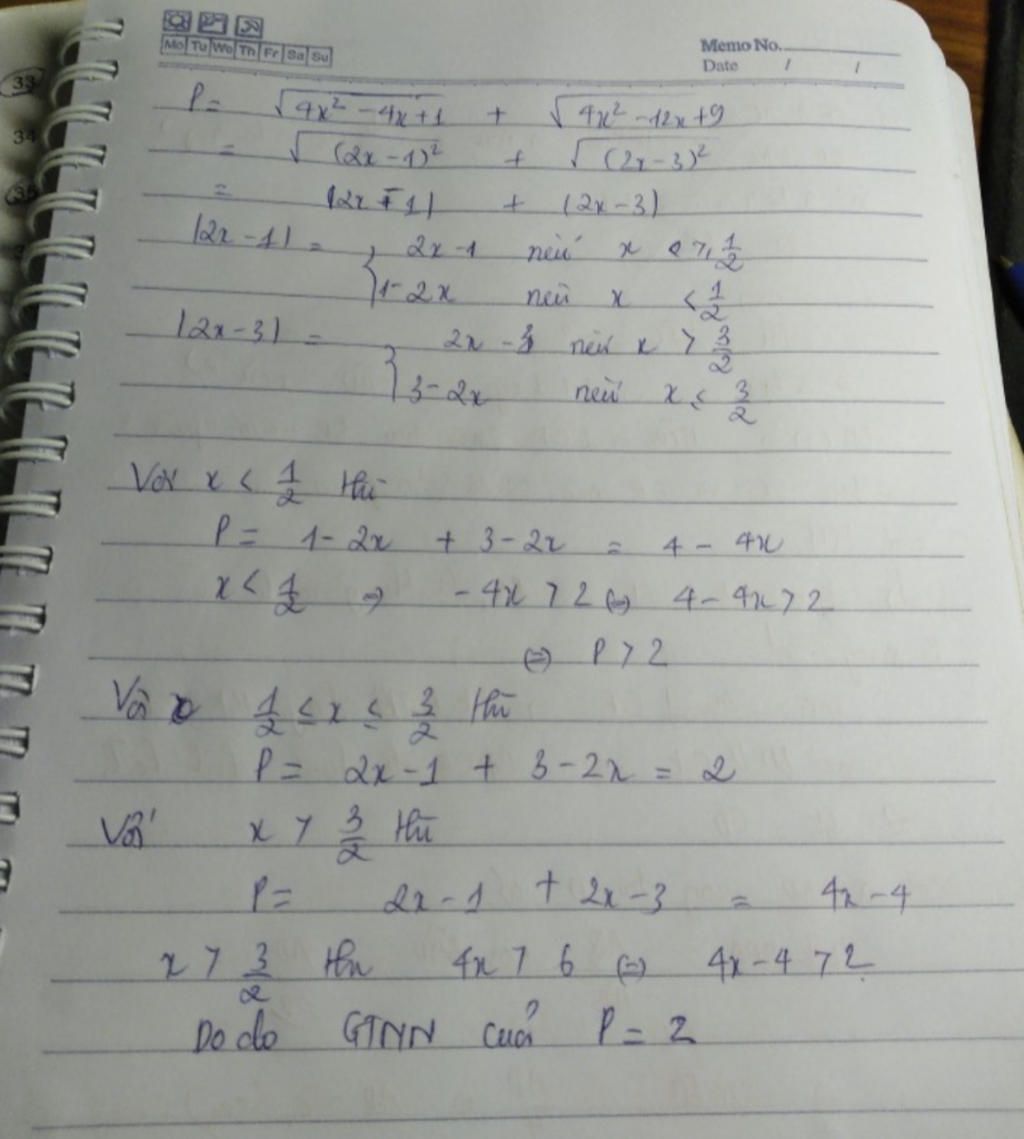 Mo Tu We Th Fr Sa Su
Memo No.
Date / /
33
34
35
P = √(4x² - 4x + 1) + √(4x² - 12x + 9)
= √((2x - 1)²) + √((2x - 3)²)
= |2x - 1| + |2x - 3|
|2x - 1| = { 2x - 1 nếu x ≥ 1/2
1 - 2x nếu x < 1/2
|2x - 3| = { 2x - 3 nếu x > 3/2
3 - 2x nếu x ≤ 3/2
Với x < 1/2 thì
P = 1 - 2x + 3 - 2x = 4 - 4x
x < 1/2 => - 4x > 2 (=) 4 - 4x > 2
(=) P > 2
Với 1/2 ≤ x ≤ 3/2 thì
P = 2x - 1 + 3 - 2x = 2
Với x > 3/2 thì
P = 2x - 1 + 2x - 3 = 4x - 4
x > 3/2 thì 4x > 6 (=) 4x - 4 > 2
Do đo GTNN cuả P = 2